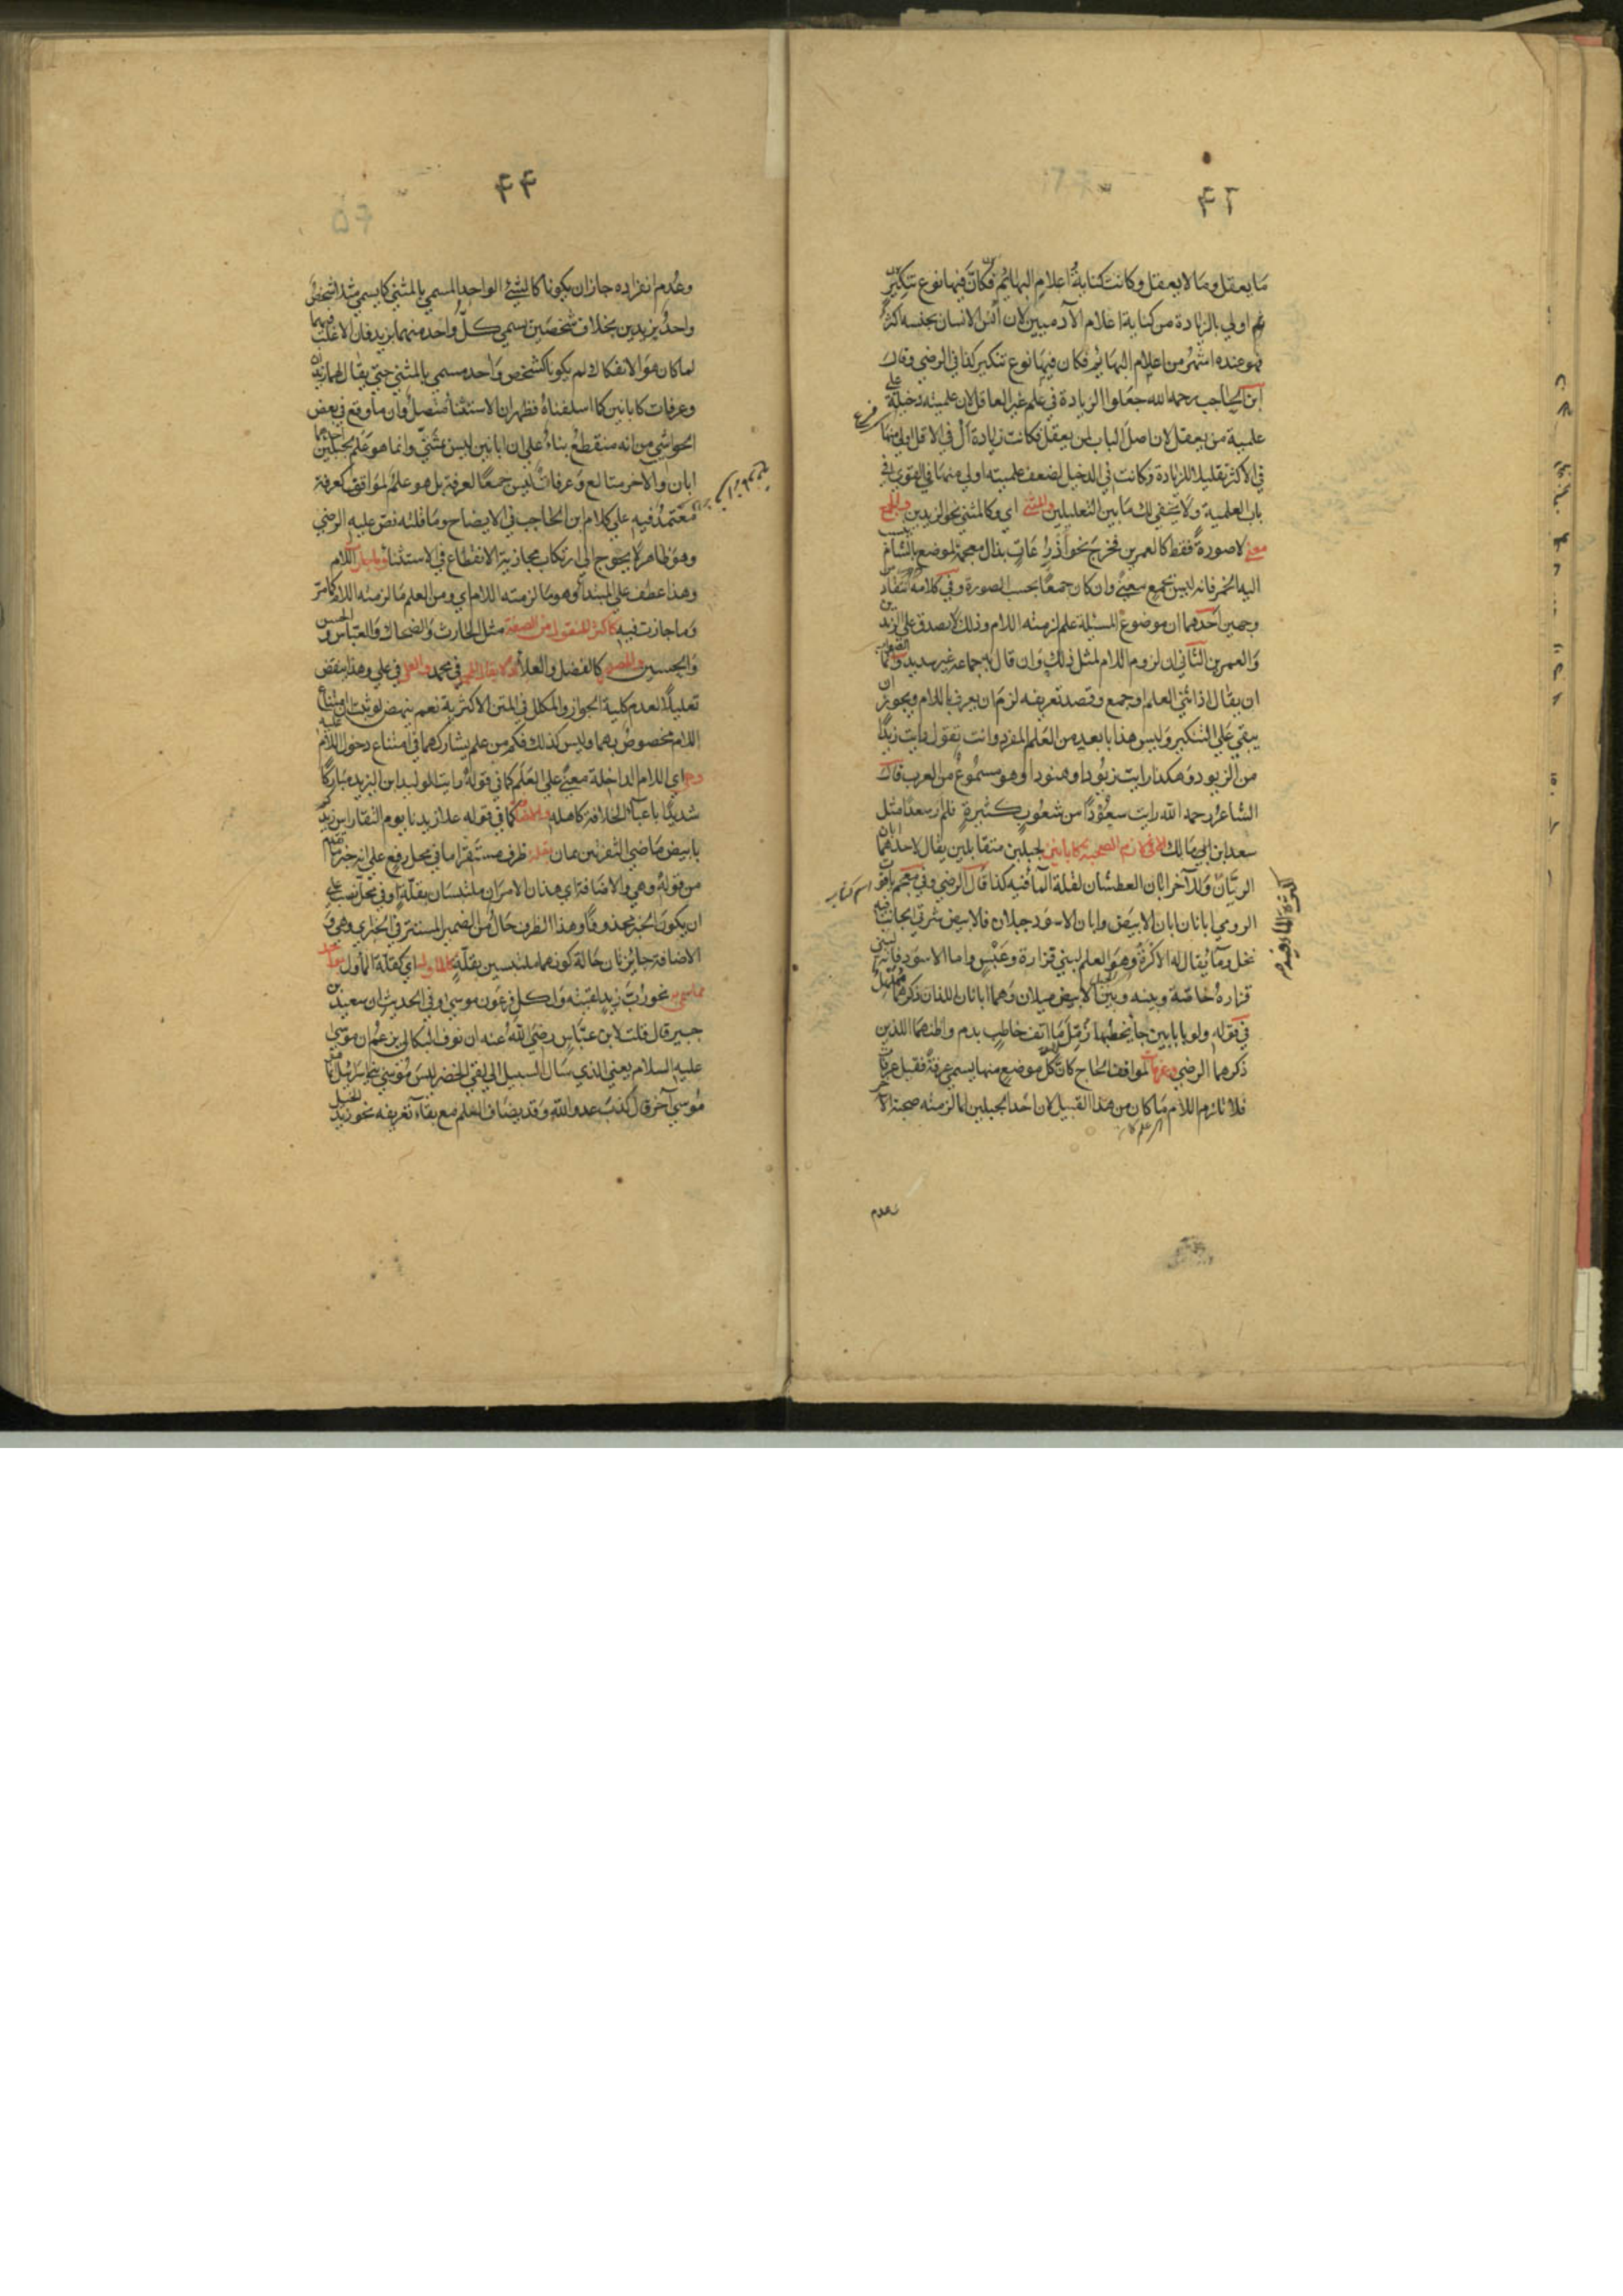 ٤٢
ما يعقل وما لا يعقل وكانت كناية اعلام البهائم فكان فيها نوع تنكير
اولي بالزيادة من كناية اعلام الآدميين لان انس الانسان بجنسه اكثر
فهو عنده اشهر من اعلام البهائم فكان فيها نوع تنكير كذا في الرضي وقال
ابن الحاجب رحمه الله جعلوا الزيادة في علم غير العاقل لان علميته دخيلة علي
علمية من يعقل لان اصل الباب لمن يعقل فكانت زيادة ال في الاقل اولي منها
في الاكثر تقليلا للزيادة وكانت في الدخيل لضعف علميته اولي منها في القوي في
باب العلمية ولا يخفي لك ما بين التعليلين وللمثني اي وكالمثني نحو الزيدين والجمع
معني لا صورة فقط كالعمرين فخرج نحو اذرعات بذال معجمة لموضع بالشام
اليه الخمر فانه ليس بجمع معني وان كان جمعا بحسب الصورة وفي كلامه انتقاد
وجهين احدهما ان موضوع المسئلة علم لزمته اللام وذلك لا يصدق علي الزيدين
والعمرين الثاني ان لزوم اللام لمثل ذلك وان قال به جماعة غير سديد
ان يقال اذا ثني العلم او جمع وقصد تعريفه لزم ان يعرف باللام ويجوز ان
يبقي علي التنكير وليس هذا بابعد من العلم المفرد وانت تقول رايت زيدا
من الزيود وهكذا رايت زيودا وهنودا وهو مسموع من العرب قال
الشاعر رحمه الله رايت سعودا من شعوب كثيرة فلم ار سعدا مثل
سعد ابن مالك لا في لازم الصحبة كابانين لجبلين متقابلين يقال لاحدهما ابان
الريان وللآخر ابان العطشان لقلة الماء فيه كذا قال الرضي وفي معجم ياقوت
الرومي ابانان ابان الابيض وابان الاسود جبلان فالابيض شرقي الحاجر فيه
نخل وماء يقال له الاكرة وهو العلم لبني فزارة وعبس واما الاسود فانه لبني
فزارة خاصة وبينه وبين الابيض ميلان وهما ابانان اللذان ذكرهما مهلهل
في قوله ولو بابانين جاء يخطبها زمل ما انف خاطب بدم واظنهما اللذين
ذكرهما الرضي وعرفات لمواقف الحاج كان كل موضع منها يسمي عرفة فقيل عرفات
فلا تلزم اللام ما كان من هذا القبيل لان احد الجبلين لما لزمته صحبة الآخر
وعدم
اسم كتاب
٤٤
وعدم انفراده جاز ان يكونا كالشئ الواحد المسمي بالمثني كما يسمي مثلا شخص
واحد بزيدين بخلاف شخصين يسمي كل واحد منهما بزيد فان الاغلب فيهما
لما كان هو الانفكاك لم يكونا كشخص واحد مسمي بالمثني حتي يقال لهما زيدان
وعرفات كابانين كما اسلفناه فظهر ان الاستثناء متصل وان ما وقع في بعض
الحواشي من انه منقطع بناء علي ان ابانين ليس بمثني وانما هو علم لجبلين احدهما
ابان والآخر متالع وعرفات ليس جمعا لعرفة بل هو علم لمواقف كعرفة
معتمد فيه علي كلام ابن الحاجب في الايضاح وما قلته نص عليه الرضي
وهو ظاهر لا يحوج الي ارتكاب مجازية الانقطاع في الاستثناء اللام
وهذا عطف علي المبتدا وهو ما لزمته اللام اي ومن العلم ما لزمته اللام كما مر
وما جازت فيه كاكثر المنقول من الصفة مثل الحارث والضحاك والعباس والحسن
والحسين والمصدر كالفضل والعلاء ولا يقال المحمد في محمد والعلي في علي وهذا ينقض
تعليلا لعدم كلية الجواز والمكلل في المتن الاكثرية نعم ينهض لو ثبت ان امتناع
اللام مخصوص بهما وليس كذلك فكم من علم يشاركهما في امتناع دخول اللام عليه
وهي اي اللام الداخلة معني علي العلم كما في قوله رايت الوليد ابن اليزيد مباركا
شديدا باعباء الخلافة كاهله والاضافة كما في قوله علا زيدنا يوم النقا راس زيدكم
بابيض ماضي الشفرتين يمان بقلة ظرف مستقر اما في محل رفع علي انه خبر ما تقدم
من قوله وهي والاضافة اي هذان الامران ملتبسان بقلة او في محل نصب علي
ان يكون الخبر محذوفا وهذا الظرف حال من الضمير المستتر في الخبر اي وهي و
الاضافة جايزتان حالة كونهما ملتبسين بقلة كالماول اي كقلة الماول بواحد
مما سمي به نحو رب زيد لقيته ولكل فرعون موسي وفي الحديث ان سعيد بن
جبير قال قلت لابن عباس رضي الله عنه ان نوف البكالي يزعم ان موسي
عليه السلام يعني الذي سال السبيل الي لقي الخضر ليس موسي بني اسرائيل انما هو
موسي آخر قال كذب عدو الله وقد يضاف العلم مع بقاء تعريفه نحو زيد الخيل